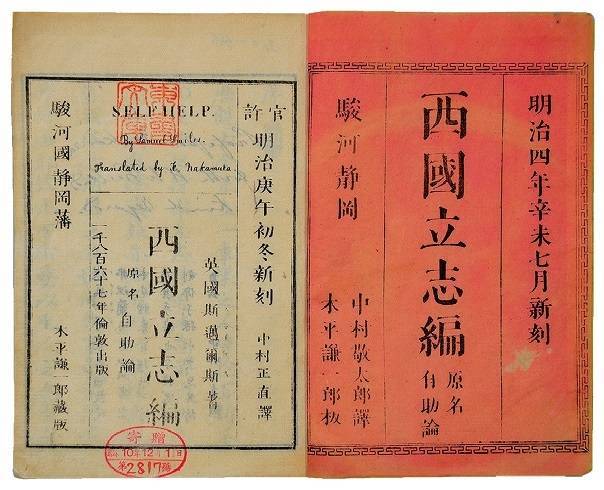 明治四年辛未七月新刻
西國立志編
原名
自助論
駿河静岡
中村敬太郎譯
木平謙一郎板
官許
明治庚午初冬新刻
中村正直譯
英國斯邁爾斯著
SELF HELP.
By Samuel Smiles.
Translated by K. Nakamura.
西國立志編
原名
自助論
一千八百六十七年倫敦出版
駿河國静岡藩
木平謙一郎藏版
寄贈
10年12月1日
第2817號